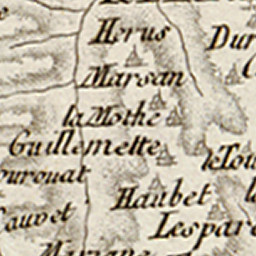 Herus
Dur
Marsan
la Mothe
Guillemette
le Tou
ourouat
Haubet
Cauvet
Lespare